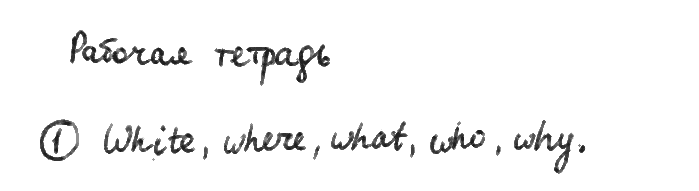 Рабочая тетрадь
① White, where, what, who, why.